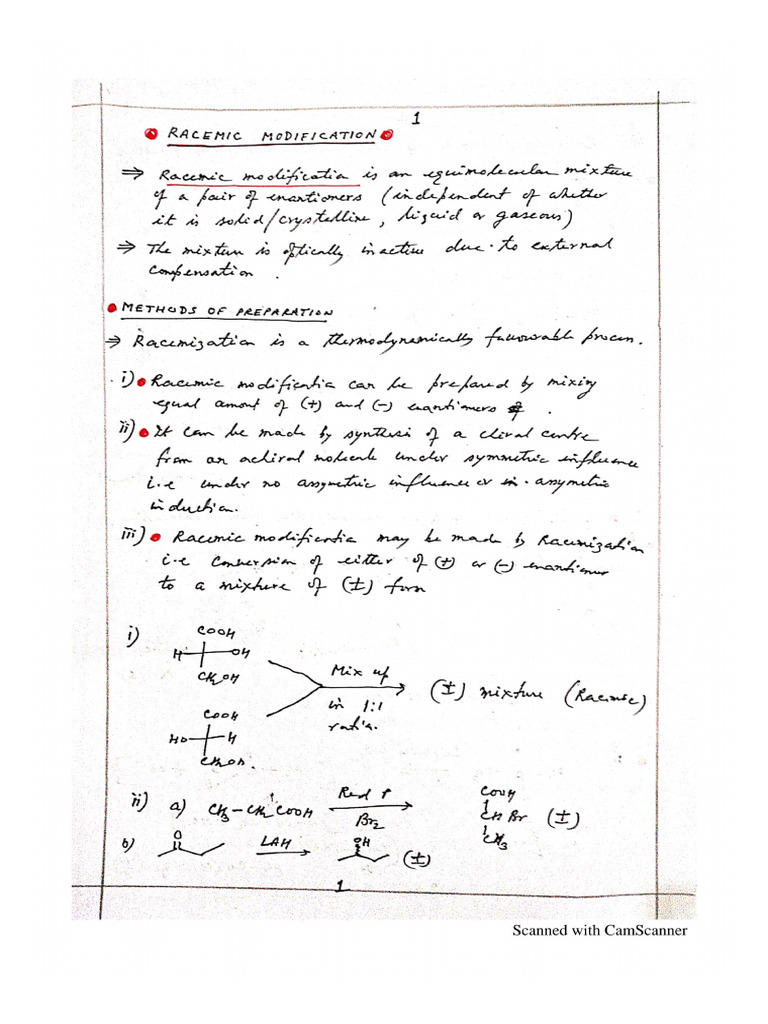 1
RACEMIC MODIFICATION
⇒ Racemic modification is an equimolecular mixture
of a pair of enantiomers (independent of whether
it is solid/crystalline, liquid or gaseous)
⇒ The mixture is optically inactive due to external
compensation.
METHODS OF PREPARATION
⇒ Racemization is a thermodynamically favourable process.
i) Racemic modification can be prepared by mixing
equal amount of (+) and (-) enantiomers.
ii) It can be made by synthesis of a chiral centre
from an achiral molecule under symmetric influence
i.e under no assymetric influence or in assymetric
induction.
iii) Racemic modification may be made by Racemization
i.e conversion of either of (+) or (-) enantiomer
to a mixture of (±) form
i)
COOH
H OH
CH2OH
Mix up
in 1:1
ratio.
(±) mixture (Racemic)
COOH
HO H
CH2OH.
ii) a) CH3-CH2COOH
Red P
Br2
COOH
CHBr (±)
CH3
b) O
LAH
OH
(±)
1
Scanned with CamScanner